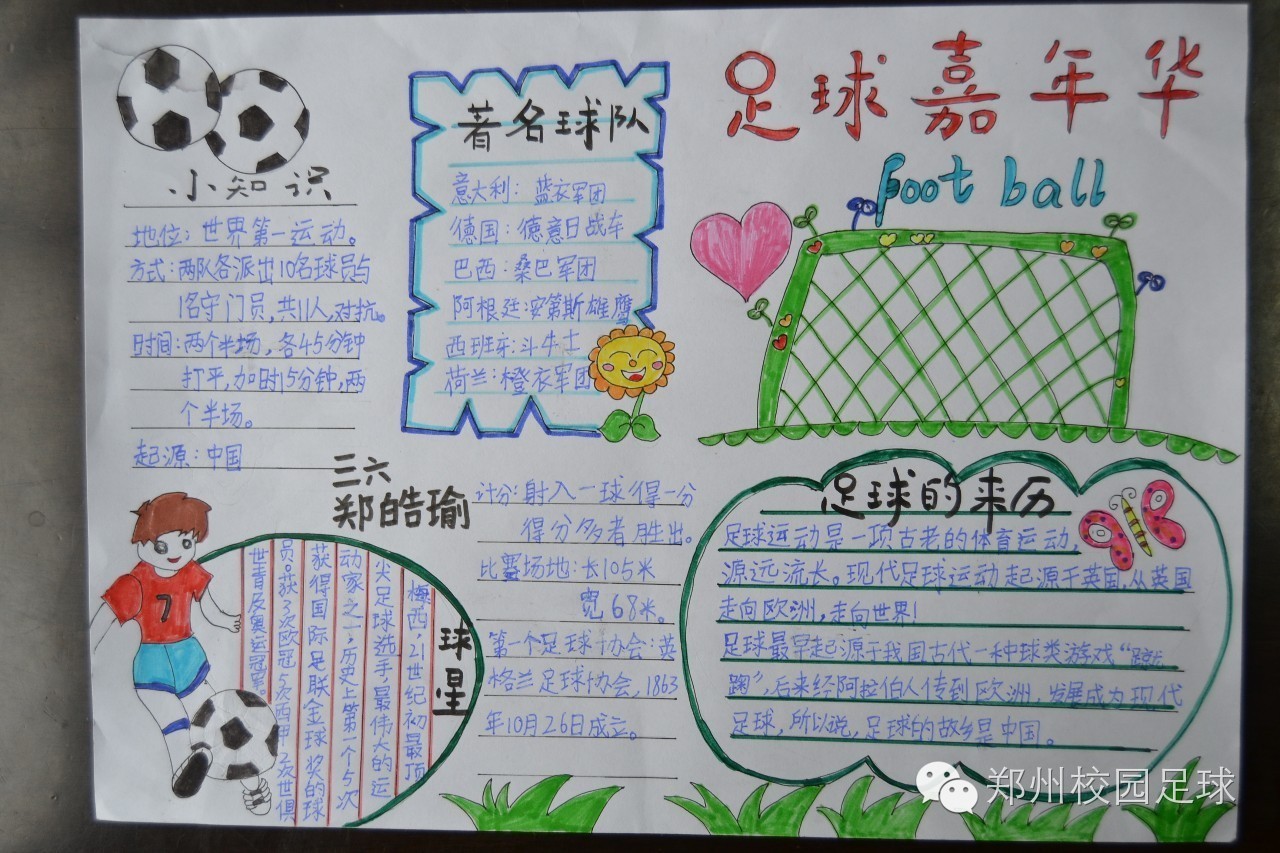 足球嘉年华
Foot ball
小知识
地位:世界第一运动。
方式:两队各派出10名球员与
1名守门员,共11人,对抗。
时间:两个半场,各45分钟
打平,加时15分钟,两
个半场。
起源:中国
著名球队
意大利:蓝衣军团
德国:德意日战车
巴西:桑巴军团
阿根廷:安第斯雄鹰
西班牙:斗牛士
荷兰:橙衣军团
三六
郑皓瑜
计分:射入一球得一分
得分多者胜出。
比赛场地:长105米
宽68米。
第一个足球协会:英
格兰足球协会,1863
年10月26日成立。
球星
梅西,21世纪初最顶
尖足球选手最伟大的运
动家之一,历史上第一个5次
获得国际足联金球奖的球
员。获3次欧冠5次西甲2次世俱
世青及奥运冠军
7
足球的来历
足球运动是一项古老的体育运动,
源远流长。现代足球运动起源于英国,从英国
走向欧洲,走向世界!
足球最早起源于我国古代一种球类游戏“蹴
鞠”,后来经阿拉伯人传到欧洲,发展成为现代
足球,所以说,足球的故乡是中国。
郑州校园足球